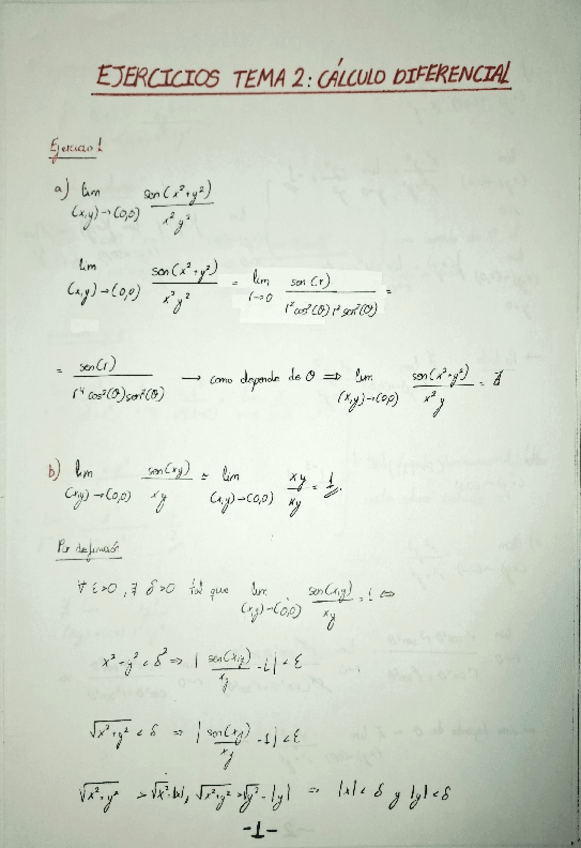 EJERCICIOS TEMA 2: CÁLCULO DIFERENCIAL
Ejercicio 1
a) lim (x,y)→(0,0) sen(x²+y²) / x²y²
lim (x,y)→(0,0) sen(x²+y²) / x²y² = lim r→0 sen(r) / r²cos²(θ) r²sen²(θ) =
= sen(r) / r⁴cos²(θ)sen²(θ) → como depende de θ ⇒ lim (x,y)→(0,0) sen(x²+y²) / x²y = ∄
b) lim (x,y)→(0,0) sen(xy) / xy = lim (x,y)→(0,0) xy / xy = 1.
Por definición
∀ ε>0, ∃ δ>0 tal que lim (x,y)→(0,0) sen(xy) / xy = 1 ⇔
x²+y² < δ² ⇒ | sen(xy) / xy - 1 | < ε
√x²+y² < δ ⇒ | sen(xy) / xy - 1 | < ε
√x²+y² > √x² = |x|, √x²+y² > √y² = |y| ⇒ |x| < δ y |y| < δ
-1-